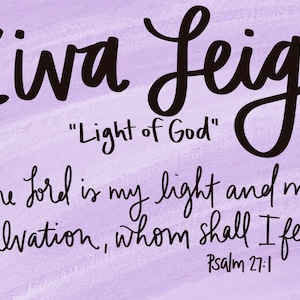 iva Leig
"Light of God"
e Lord is my light and m
lvation, whom shall I fe
Psalm 27:1